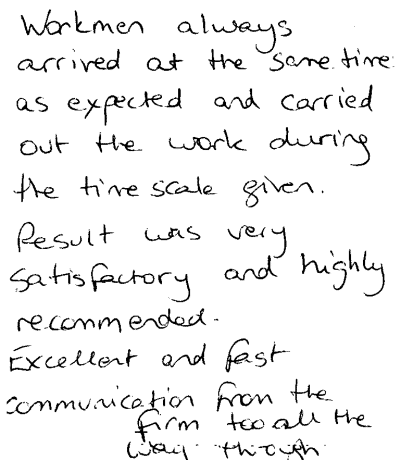 Workmen always
arrived at the same time
as expected and carried
out the work during
the time scale given.
Result was very
satisfactory and highly
recommended.
Excellent and fast
communication from the
firm too all the
way through